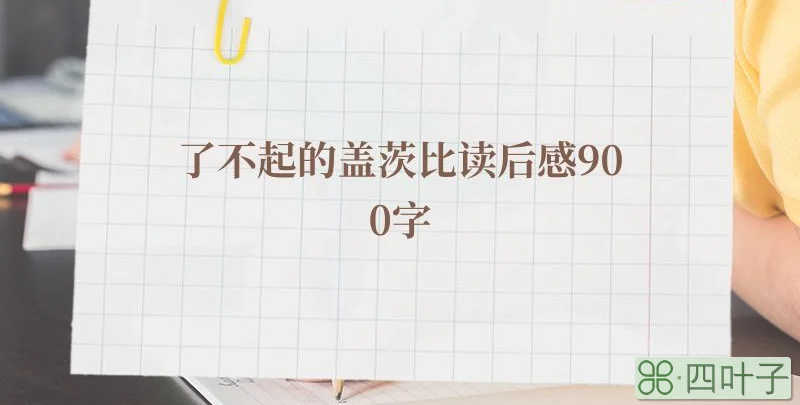 了不起的盖茨比读后感90
0字
四叶子